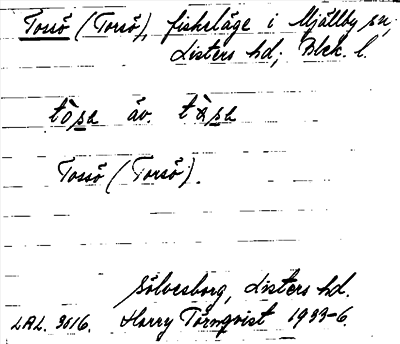 Torsö (Torsö), fiskeläge i Mjällby sn,
Listers hd; Blek. l.
tòsa äv. tàsa
Tossö (Torsö).
Sölvesborg, Listers hd.
LAL. 3016. Harry Törnqvist 1933-6.